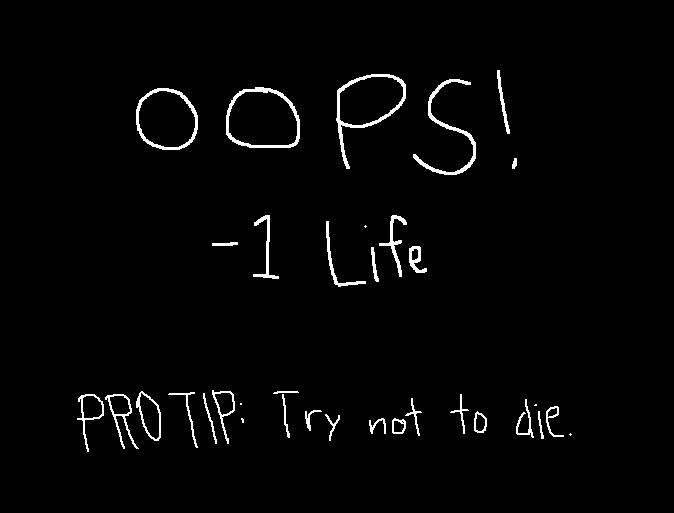 OOPS!
-1 Life
PROTIP: Try not to die.